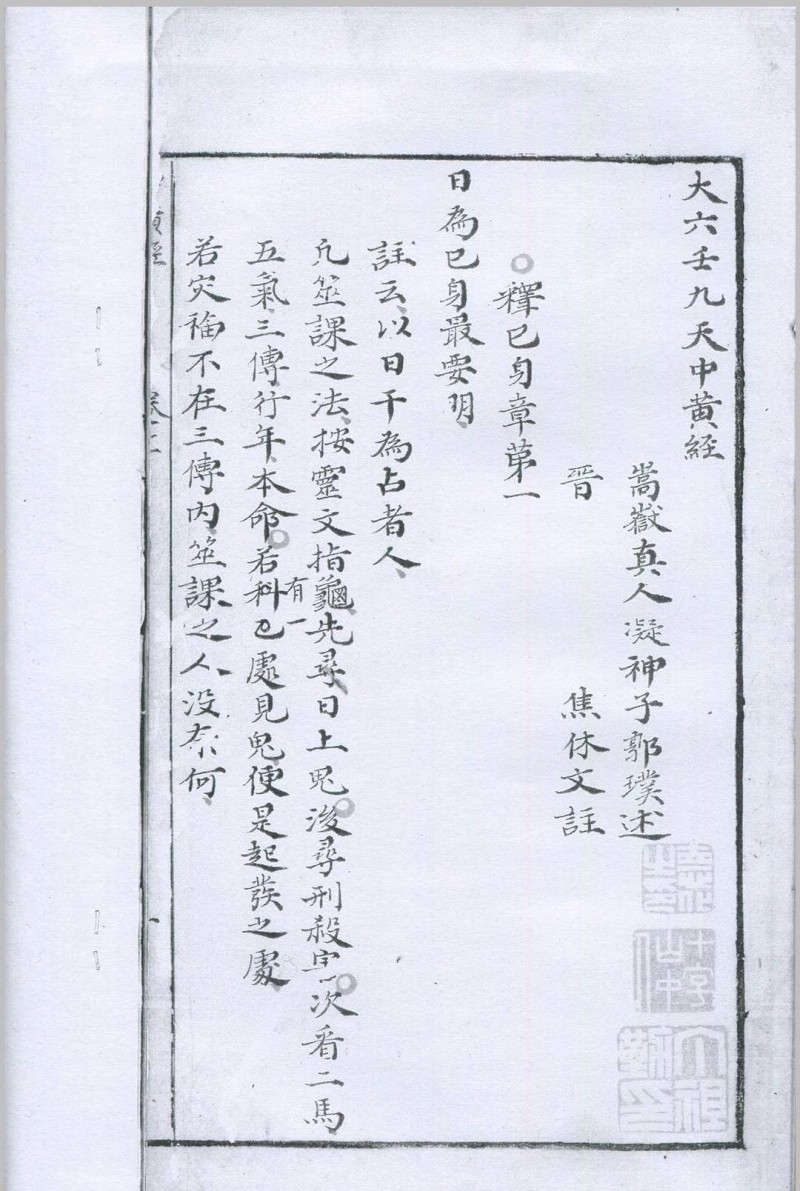 大六壬九天中黄経
嵩嶽真人凝神子郭璞述
晋 焦休文註
釋已身章苐一
日為已身最要明
註云以日干為占者人
凢筮課之法按靈文指龜先尋日上鬼後尋刑殺害次看二馬
五氣三傳行年本命若科有一已處見鬼便是起發之處
若灾福不在三傳内筮課之人没奈何